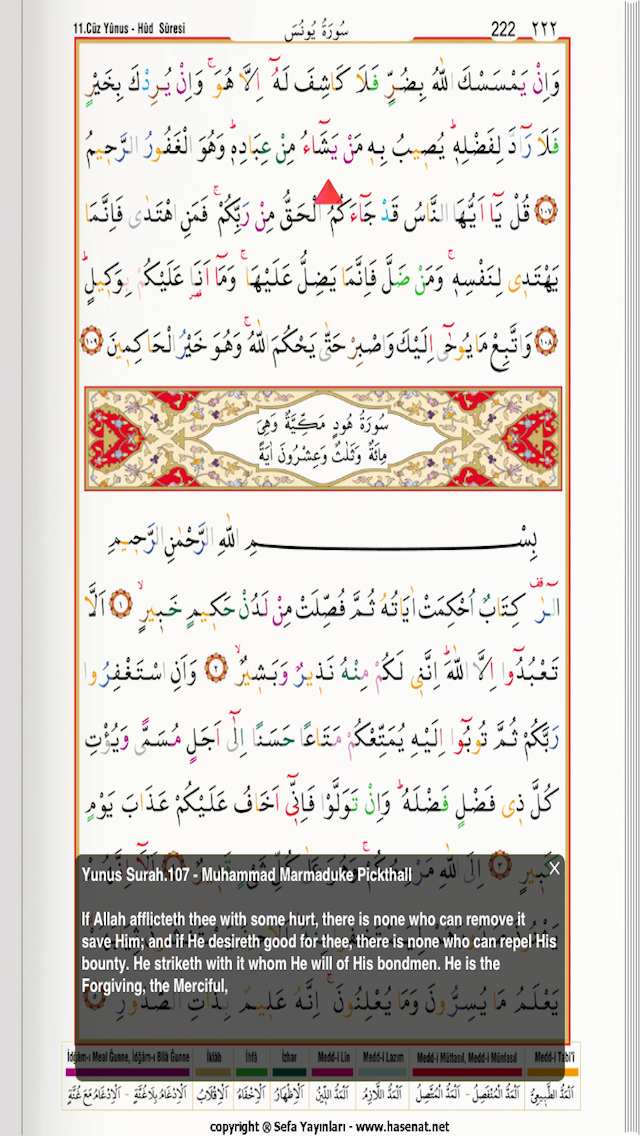 11.Cüz Yûnus - Hûd Sûresi سُورَةُ يُونُسَ 222 ٢٢٢
وَاِنْ يَمْسَسْكَ اللّٰهُ بِضُرٍّ فَلَا كَاشِفَ لَهُٓ اِلَّا هُوَۚ وَاِنْ يُرِدْكَ بِخَيْرٍ
فَلَا رَٓادَّ لِفَضْلِه۪ۜ يُص۪يبُ بِه۪ مَنْ يَشَٓاءُ مِنْ عِبَادِه۪ۜ وَهُوَ الْغَفُورُ الرَّح۪يمُ
﴿١٠٧﴾ قُلْ يَٓا اَيُّهَا النَّاسُ قَدْ جَٓاءَكُمُ الْحَقُّ مِنْ رَبِّكُمْۚ فَمَنِ اهْتَدٰى فَاِنَّمَا
يَهْتَد۪ي لِنَفْسِه۪ۚ وَمَنْ ضَلَّ فَاِنَّمَا يَضِلُّ عَلَيْهَاۚ وَمَٓا اَنَا۬ عَلَيْكُمْ بِوَك۪يلٍۜ
﴿١٠٨﴾ وَاتَّبِعْ مَا يُوحٰٓى اِلَيْكَ وَاصْبِرْ حَتّٰى يَحْكُمَ اللّٰهُۚ وَهُوَ خَيْرُ الْحَاكِم۪ينَ ﴿١٠٩﴾
سُورَةُ هُودٍ مَكِّيَّةٌ وَهِيَ
مِائَةٌ وَثَلٰثٌ وَعِشْرُونَ اٰيَةً
بِسْمِ اللّٰهِ الرَّحْمٰنِ الرَّح۪يمِ
الٓرٰ۠ كِتَابٌ اُحْكِمَتْ اٰيَاتُهُ ثُمَّ فُصِّلَتْ مِنْ لَدُنْ حَك۪يمٍ خَب۪يرٍۙ ﴿١﴾ اَلَّا
تَعْبُدُٓوا اِلَّا اللّٰهَۜ اِنَّن۪ي لَكُمْ مِنْهُ نَذ۪يرٌ وَبَش۪يرٌۙ ﴿٢﴾ وَاَنِ اسْتَغْفِرُوا
رَبَّكُمْ ثُمَّ تُوبُٓوا اِلَيْهِ يُمَتِّعْكُمْ مَتَاعًا حَسَنًا اِلٰٓى اَجَلٍ مُسَمًّى وَيُؤْتِ
كُلَّ ذ۪ي فَضْلٍ فَضْلَهُۜ وَاِنْ تَوَلَّوْا فَاِنّ۪ٓي اَخَافُ عَلَيْكُمْ عَذَابَ يَوْمٍ
كَب۪يرٍ ﴿٣﴾ اِلَى اللّٰهِ
X
Yunus Surah.107 - Muhammad Marmaduke Pickthall
If Allah afflicteth thee with some hurt, there is none who can remove it
save Him; and if He desireth good for thee, there is none who can repel His
bounty. He striketh with it whom He will of His bondmen. He is the
Forgiving, the Merciful,
يَعْلَمُ مَا يُسِرُّونَ وَمَا يُعْلِنُونَۚ اِنَّهُ عَل۪يمٌ بِذَاتِ الصُّدُورِ
İdğâm-ı Meal Ğunne, İdğâm-ı Bilâ Ğunne İklâb İhfâ İzhar Medd-i Lin Medd-i Lazım Medd-i Müttasıl, Medd-i Münfasıl Medd-i Tabi'î
اَلْاِدْغَامُ مَعَ غُنَّةٍ - اَلْاِدْغَامُ بِلَاغُنَّةٍ اَلْاِقْلَابُ اَلْاِخْفَاءُ اَلْاِظْهَارُ اَلْمَدُّ اللّ۪ينُ اَلْمَدُّ اللَّازِمُ اَلْمَدُّ الْمُتَّصِلُ - اَلْمَدُّ الْمُنْفَصِلُ اَلْمَدُّ الطَّب۪يعِيُّ
copyright ® Sefa Yayınları - www.hasenat.net